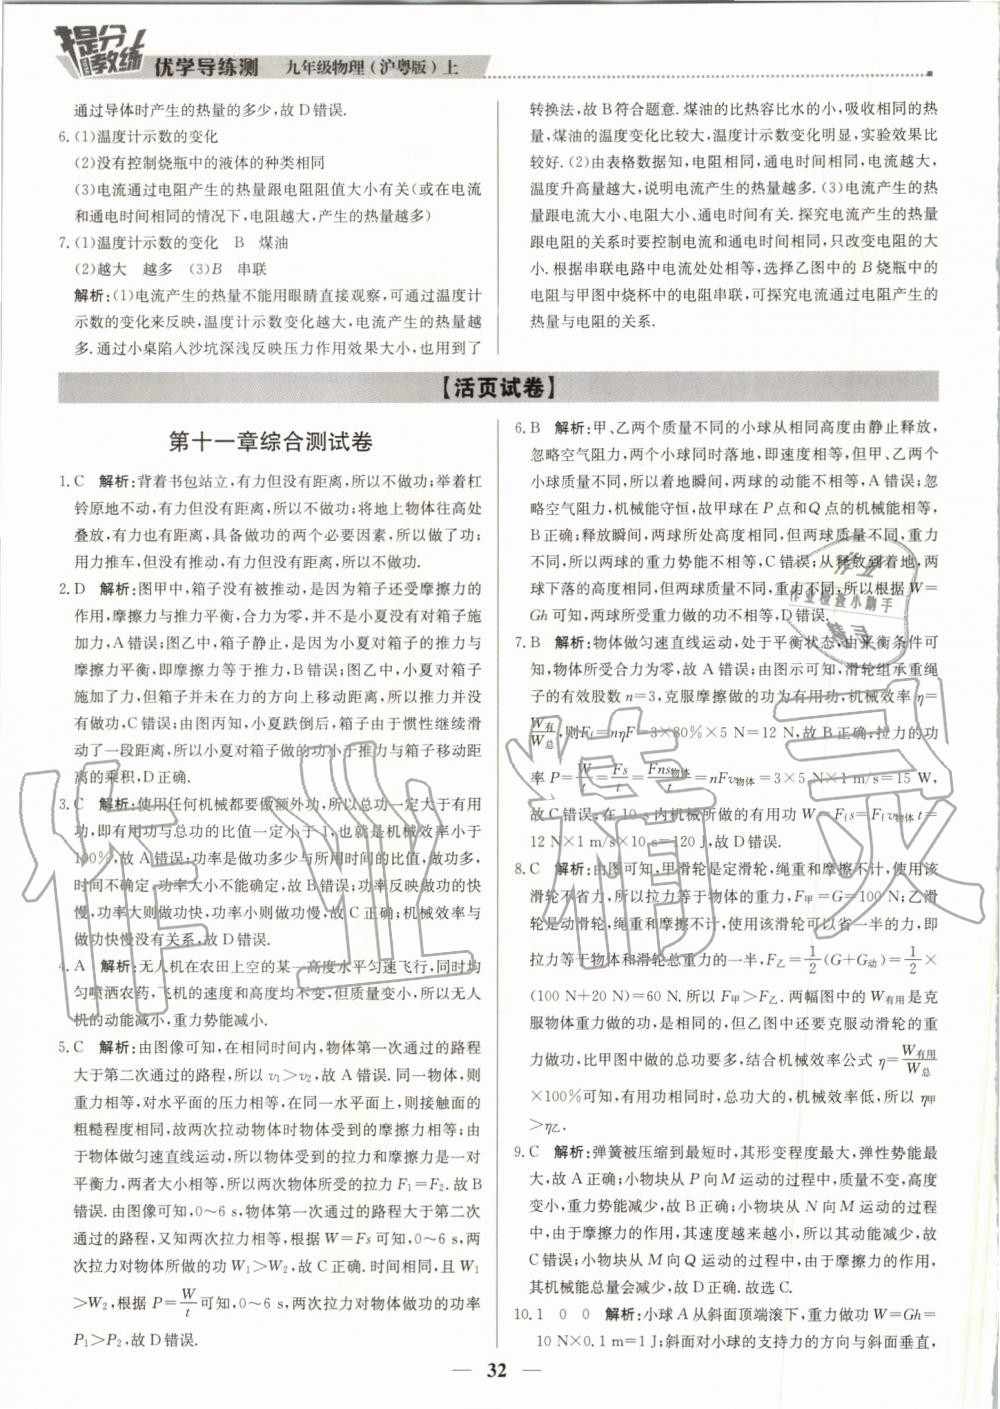 提分教练
优学导练测 九年级物理(沪粤版)上
通过导体时产生的热量的多少,故D错误.
6.(1)温度计示数的变化
(2)没有控制烧瓶中的液体的种类相同
(3)电流通过电阻产生的热量跟电阻阻值大小有关(或在电流
和通电时间相同的情况下,电阻越大,产生的热量越多)
7.(1)温度计示数的变化 B 煤油
(2)越大 越多 (3)B 串联
解析:(1)电流产生的热量不能用眼睛直接观察,可通过温度计
示数的变化来反映,温度计示数变化越大,电流产生的热量越
多.通过小桌陷入沙坑深浅反映压力作用效果大小,也用到了
转换法,故B符合题意.煤油的比热容比水的小,吸收相同的热
量,煤油的温度变化比较大,温度计示数变化明显,实验效果比
较好.(2)由表格数据知,电阻相同,通电时间相同,电流越大,
温度升高量越大,说明电流产生的热量越多.(3)电流产生的热
量跟电流大小、电阻大小、通电时间有关.探究电流产生的热量
跟电阻的关系时要控制电流和通电时间相同,只改变电阻的大
小.根据串联电路中电流处处相等,选择乙图中的B烧瓶中的
电阻与甲图中烧杯中的电阻串联,可探究电流通过电阻产生的
热量与电阻的关系.
【活页试卷】
第十一章综合测试卷
1.C 解析:背着书包站立,有力但没有距离,所以不做功;举着杠
铃原地不动,有力但没有距离,所以不做功;将地上物体往高处
叠放,有力也有距离,具备做功的两个必要因素,所以做了功;
用力推车,但没有推动,有力但没有距离,所以不做功.
2.D 解析:图甲中,箱子没有被推动,是因为箱子还受摩擦力的
作用,摩擦力与推力平衡,合力为零,并不是小夏没有对箱子施
加力,A错误;图乙中,箱子静止,是因为小夏对箱子的推力与
摩擦力平衡,即摩擦力等于推力,B错误;图乙中,小夏对箱子
施加了力,但箱子并未在力的方向上移动距离,所以推力并没
有做功,C错误;由图丙知,小夏跌倒后,箱子由于惯性继续滑
动了一段距离,所以小夏对箱子做的功小于推力与箱子移动距
离的乘积,D正确.
3.C 解析:使用任何机械都要做额外功,所以总功一定大于有用
功,即有用功与总功的比值一定小于1,也就是机械效率小于
100%,故A错误;功率是做功多少与所用时间的比值,做功多,
时间不确定,功率大小不能确定,故B错误;功率反映做功的快
慢,功率大则做功快,功率小则做功慢,故C正确;机械效率与
做功快慢没有关系,故D错误.
4.A 解析:无人机在农田上空的某一高度水平匀速飞行,同时均
匀喷洒农药,飞机的速度和高度均不变,但质量变小,所以无人
机的动能减小,重力势能减小.
5.C 解析:由图像可知,在相同时间内,物体第一次通过的路程
大于第二次通过的路程,所以v₁>v₂,故A错误.同一物体,则
重力相等,对水平面的压力相等,在同一水平面上,则接触面的
粗糙程度相同,故两次拉动物体时物体受到的摩擦力相等;由
于物体做匀速直线运动,所以物体受到的拉力和摩擦力是一对
平衡力,两者大小相等,所以两次物体所受的拉力F₁=F₂.故B
错误.由图像可知,0~6 s,物体第一次通过的路程大于第二次
通过的路程,又知两次拉力相等,根据W=Fs可知,0~6 s,两
次拉力对物体所做的功W₁>W₂,故C正确.时间相同,且W₁
>W₂,根据P=W/t可知,0~6 s,两次拉力对物体做功的功率
P₁>P₂,故D错误.
6.B 解析:甲、乙两个质量不同的小球从相同高度由静止释放,
忽略空气阻力,两球同时落地,即速度相等,但甲、乙两个
小球质量不同,所以着地瞬间,两球的动能不相等,A错误;忽
略空气阻力,机械能守恒,故甲球在P点和Q点的机械能相等,
B正确;释放瞬间,两球所处高度相同,但两球质量不同,重力
不同,所以两球的重力势能不相等,C错误;从释放到着地,两
球下落的高度相同,但两球质量不同,重力不同,所以根据W=
Gh可知,两球所受重力做的功不相等,D错误.
7.B 解析:物体做匀速直线运动,处于平衡状态,由平衡条件可
知,物体所受合力为零,故A错误;由图示可知,滑轮组承重绳
子的有效股数n=3,克服摩擦做的功为有用功,机械效率η=
W有/W总,则Ff=nηF=3×80%×5 N=12 N,故B正确;拉力的功
率P=W/t=Fs/t=Fns物体/t=nFv物体=3×5 N×1 m/s=15 W,
故C错误;在10 s内机械所做的有用功W=Ffs=Ffv物体t=
12 N×1 m/s×10 s=120 J,故D错误.
8.C 解析:由图可知,甲滑轮是定滑轮,绳重和摩擦不计,使用该
滑轮不省力,所以拉力等于物体的重力,F甲=G=100 N;乙滑
轮是动滑轮,绳重和摩擦不计,使用该滑轮可以省一半的力,即
拉力等于物体和滑轮总重力的一半,F乙=1/2(G+G动)=1/2×
(100 N+20 N)=60 N.所以F甲>F乙.两幅图中的W有用是克
服物体重力做的功,是相同的,但乙图中还要克服动滑轮的重
力做功,比甲图中做的总功要多,结合机械效率公式η=W有用/W总
×100%可知,有用功相同时,总功大的,机械效率低,所以η甲
>η乙.
9.C 解析:弹簧被压缩到最短时,其形变程度最大,弹性势能最
大,故A正确;小物块从P向M运动的过程中,质量不变,高度
变小,重力势能减少,故B正确;小物块从N向M运动的过程
中,由于摩擦力的作用,其速度越来越小,所以其动能减小,故
C错误;小物块从M向Q运动的过程中,由于摩擦力的作用,
其机械能总量会减少,故D正确.故选C.
10.1 0 0 解析:小球A从斜面顶端滚下,重力做功W=Gh=
10 N×0.1 m=1 J;斜面对小球的支持力的方向与斜面垂直,
作业精灵
作业
作业检查小助手
精灵
32